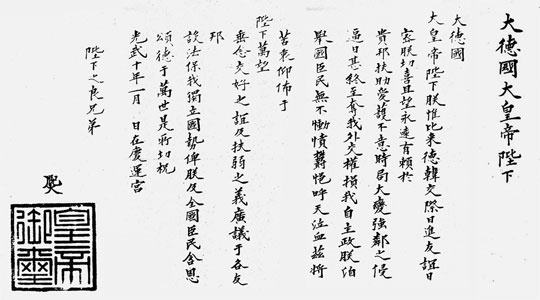 大德國大皇帝陛下
大德國
大皇帝陛下朕惟比來德韓交際日進友誼日
密朕切喜且望永遠有賴於
貴邦扶助愛護不意時局大變強鄰之侵
逼日甚終至奪我外交權損我自主政朕伯
舉國臣民無不慟憤鬱悒呼天泣血茲將
苦衷仰佈于
陛下萬望
垂念交好之誼及扶弱之義廣議于各友
邦
設法保我獨立國勢俾朕及全國臣民含恩
頌德于萬世是所切祝
光武十年一月 日在慶運宮
陛下之良兄弟
皇帝
御璽